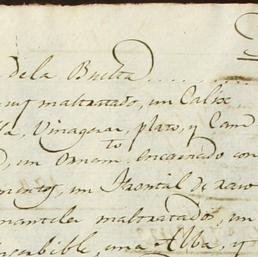 dela Buelta
muy maltratado, un Caliz
Vinagera, plato, y Cam
un Ornam.to encarnado con
mentos, un Frontal de raso
manteles maltratados, un
servible, una Alba, y